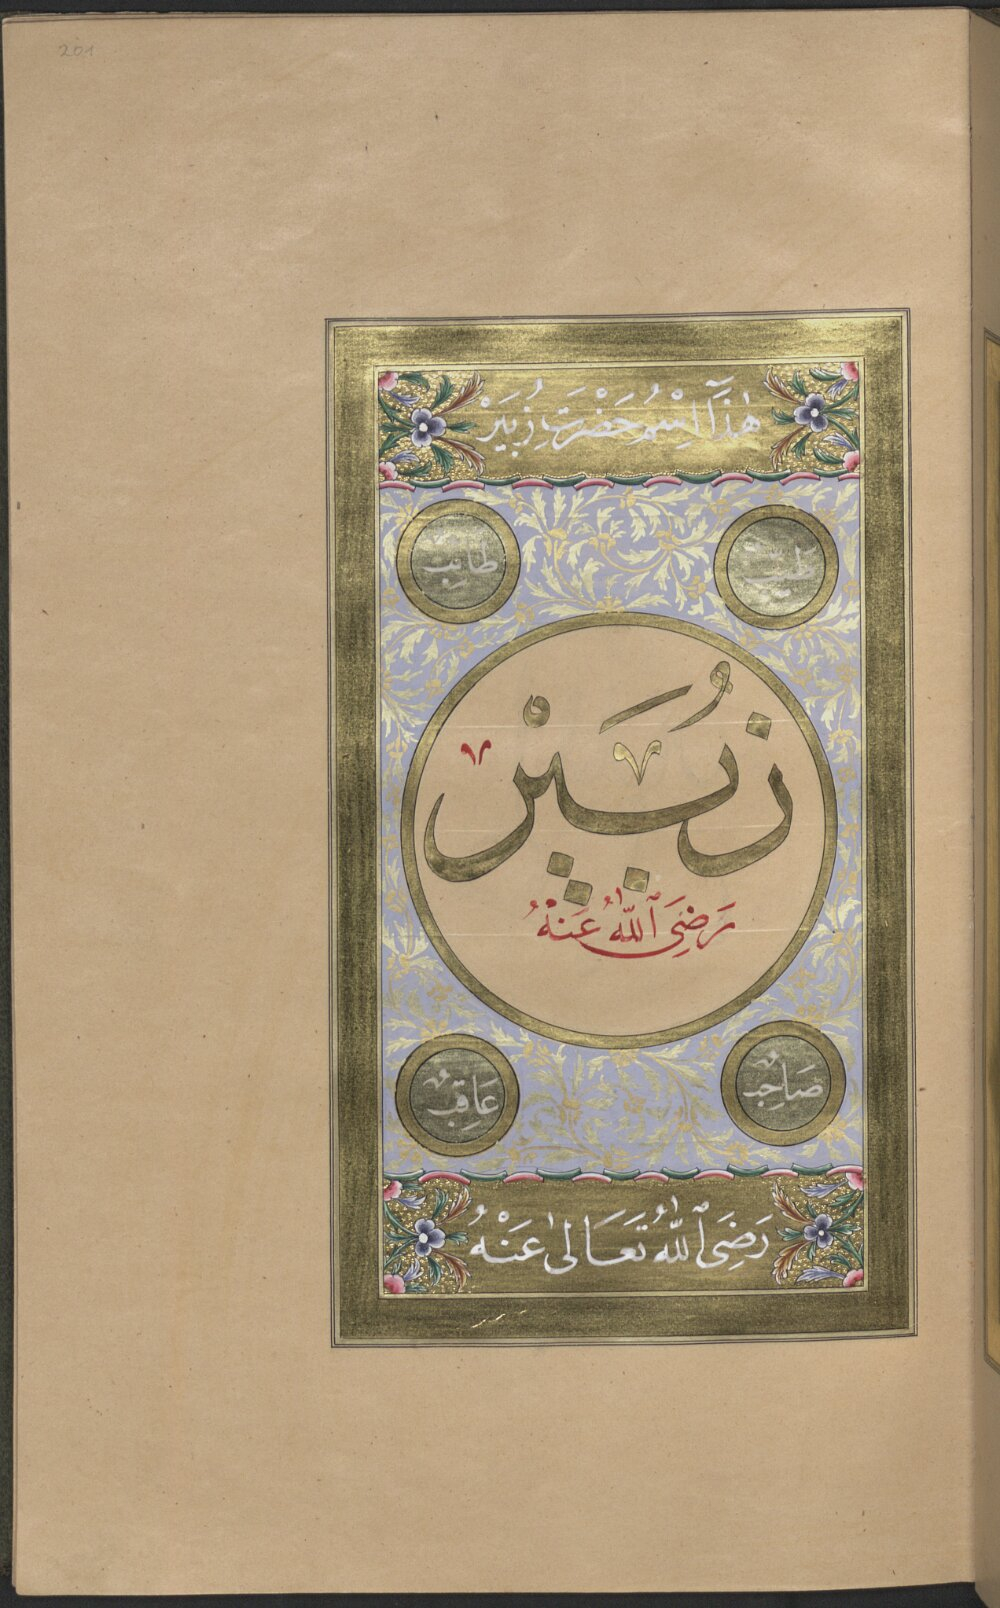 201
هٰذَا اِسْمُ حَضْرَتِ زُبَيْرْ
طَيِّبٌ
طَائِبٌ
زُبَيْرْ
رَضِیَ ٱللّٰهُ عَنْهُ
صَاحِبُ
عَاقِبُ
رَضِیَ ٱللّٰهُ تَعَالٰی عَنْهُ